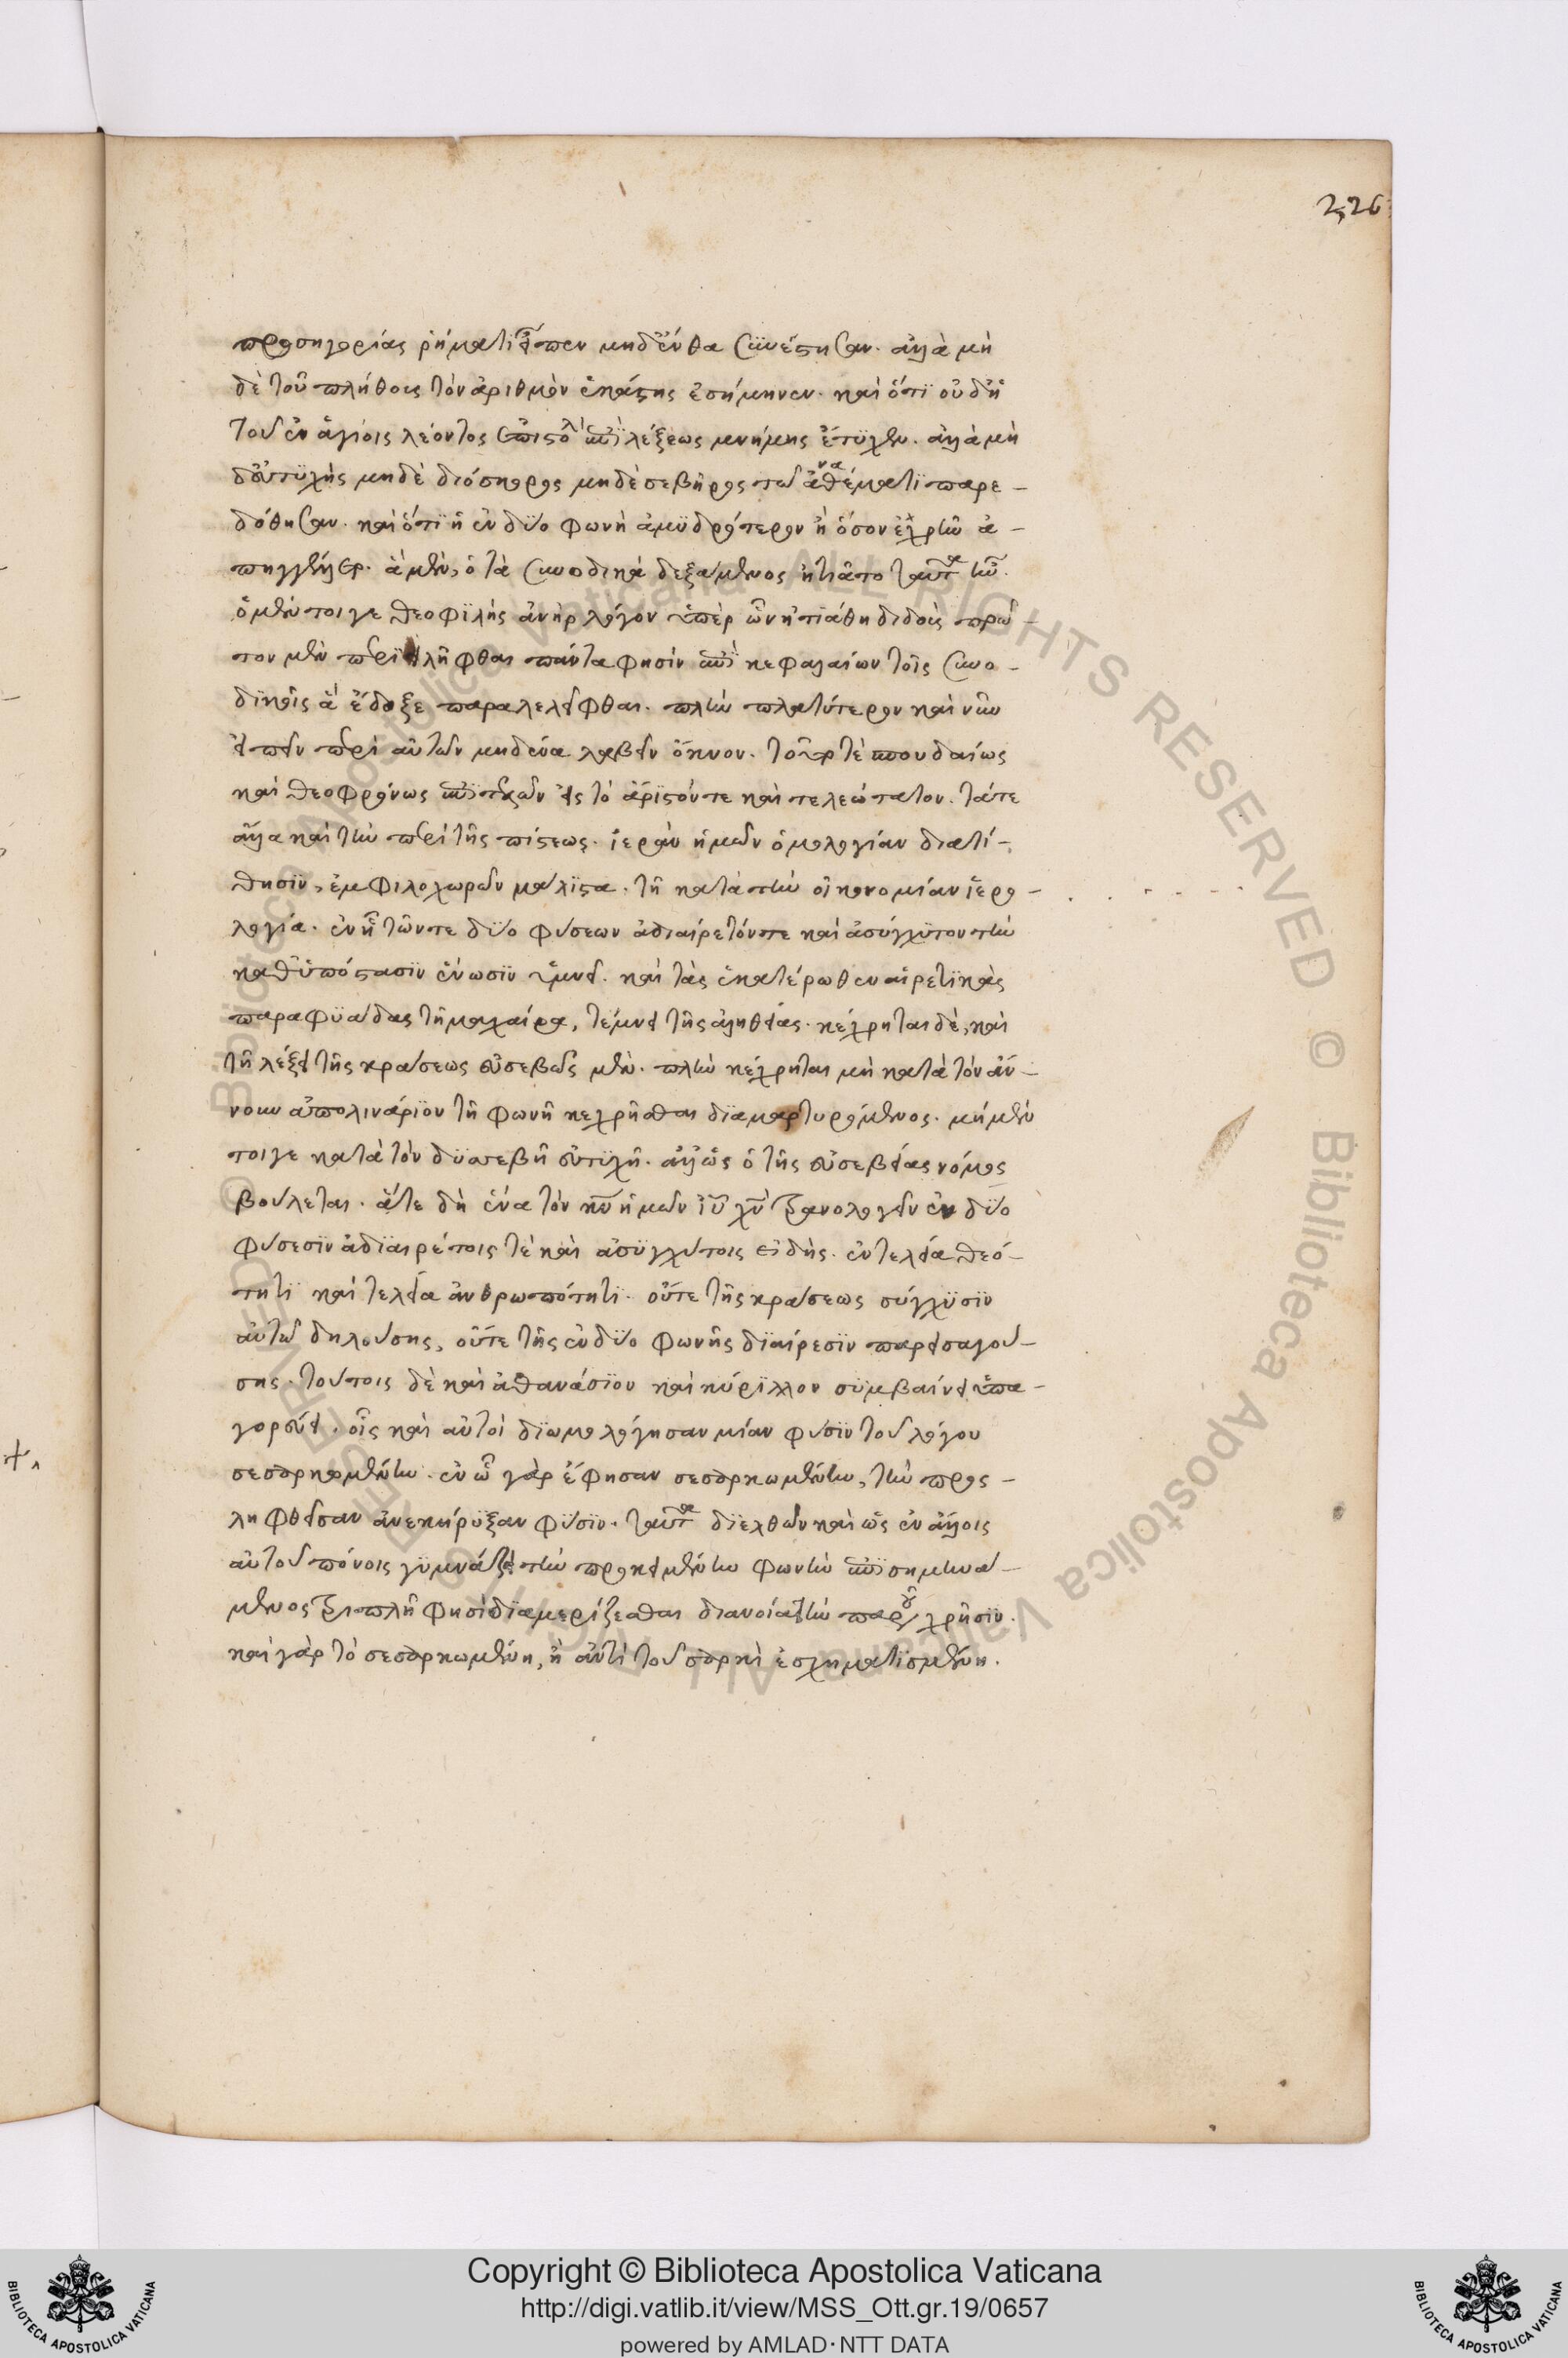 226
προσηγορίας ῥήματι εἶπεν μηδ' ἔνθα συνέστησαν. ἀλλὰ μὴ
δὲ τοῦ πλήθους τὸν ἀριθμὸν ἑκάστης ἐσήμηνεν. καὶ ὅτι οὐδ' ἡ
τοῦ ἐν ἁγίοις λέοντος ἐπιστολὴ ἐπὶ λέξεως μνήμης ἔτυχεν. ἀλλὰ μὴ
δ' εὐτυχὴς μηδὲ διόσκορος μηδὲ σεβῆρος τῶ ἀναθέματι παρε-
δόθησαν. καὶ ὅτι ἡ ἐν δύο φωνὴ ἀμυδρότερον ἢ ὅσον ἐχρῆν ἀ-
πηγγέλλετο. ἃ μὲν, ὁ τὰ συνοδικὰ δεξάμενος ἠτιᾶτο ταῦτα ἦν.
ὁ μέντοιγε θεοφιλὴς ἀνὴρ λόγον ὑπὲρ ὧν ἠτιάθη διδοὺς πρῶ-
τον μὲν περιειλῆφθαι πάντα φησὶν ἐπὶ κεφαλαίων τοῖς συνο-
δικοῖς ἃ ἔδοξε παραλελεῖφθαι. πλὴν πλατύτερον καὶ νῦν
εἰπεῖν περὶ αὐτῶν μηδένα λαβεῖν ὄκνον. τοῦτό τε σπουδαίως
καὶ θεοφρόνως ἐπιτελῶν εἰς τὸ ἄριστόν τε καὶ τελεώτατον. τά τε
ἄλλα καὶ τὴν περὶ τῆς πίστεως. ἱερὰν ἡμῶν ὁμολογίαν διατί-
θησιν, ἐμφιλοχωρῶν μάλιστα. τῆ κατὰ τὴν οἰκονομίαν ἱερο-
λογία. ἐν ἧ τῶν τε δύο φύσεων ἀδιαίρετόν τε καὶ ἀσύγχυτον τὴν
καθ' ὑπόστασιν ἕνωσιν ὑμνεῖ. καὶ τὰς ἑκατέρωθεν αἱρετικὰς
παραφυάδας τῆ μαχαίρα, τέμνει τῆς ἀληθείας. κέχρηται δὲ, καὶ
τῆ λέξει τῆς κράσεως εὐσεβῶς μὲν. πλὴν κέχρηται μὴ κατὰ τὸν ἄν-
νουν ἀπολινάριον τῆ φωνῆ κεχρῆσθαι διαμαρτυρόμενος. μὴ μέν
τοιγε κατὰ τὸν δυσσεβῆ εὐτυχῆ. ἀλλ' ὡς ὁ τῆς εὐσεβείας νόμος
βούλεται. ἅτε δὴ ἕνα τὸν κν ἡμῶν ιν χν τρανολογεῖν ἐν δύο
φύσεσιν ἀδιαιρέτοις τὲ καὶ ἀσυγχύτοις εἰδὼς. ἐν τελεία θεό-
τητι καὶ τελεία ἀνθρωπότητι. οὔτε τῆς κράσεως σύγχυσιν
αὐτῶ δηλούσης, οὔτε τῆς ἐν δύο φωνῆς διαίρεσιν παρεισαγού-
σης. τούτοις δὲ καὶ ἀθανάσιον καὶ κύριλλον συμβαίνει ὑπα-
γορεύει. οἷς καὶ αὐτοὶ διωμολόγησαν μίαν φύσιν τοῦ λόγου
σεσαρκωμένην. ἐν ὧ γὰρ ἔφησαν σεσαρκωμένην, τὴν προς-
ληφθεῖσαν ἀνεκήρυξαν φύσιν. ταῦτα διελθὼν καὶ ὡς ἐν ἄλλοις
αὐτοῦ πόνοις γυμνάζει τὴν προκειμένην φωνὴν ἐπισημηνά-
μενος τριπλῆ φησὶ διαμερίζεσθαι διανοία τὴν παροῦ χρῆσιν.
καὶ γὰρ τὸ σεσαρκωμένη, ἢ ἀντὶ τοῦ σαρκὶ ἐσχηματισμένη.
Copyright © Biblioteca Apostolica Vaticana
http://digi.vatlib.it/view/MSS_Ott.gr.19/0657
powered by AMLAD·NTT DATA